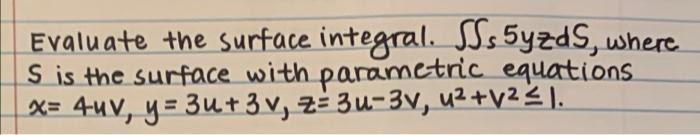 Evaluate the surface integral. ∬s 5yzdS, where
S is the surface with parametric equations
x= 4uv, y= 3u+3v, z= 3u-3v, u²+v²≤1.